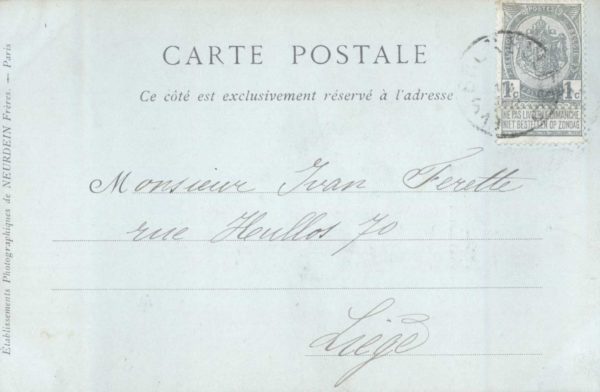 CARTE POSTALE
Ce côté est exclusivement réservé à l'adresse
POSTES
1c 1c
NE PAS LIVRER LE DIMANCHE
NIET BESTELLEN OP ZONDAG
Monsieur Ivan Ferette
rue Hullos 70
Liège
Établissements Photographiques de NEURDEIN Frères. — Paris